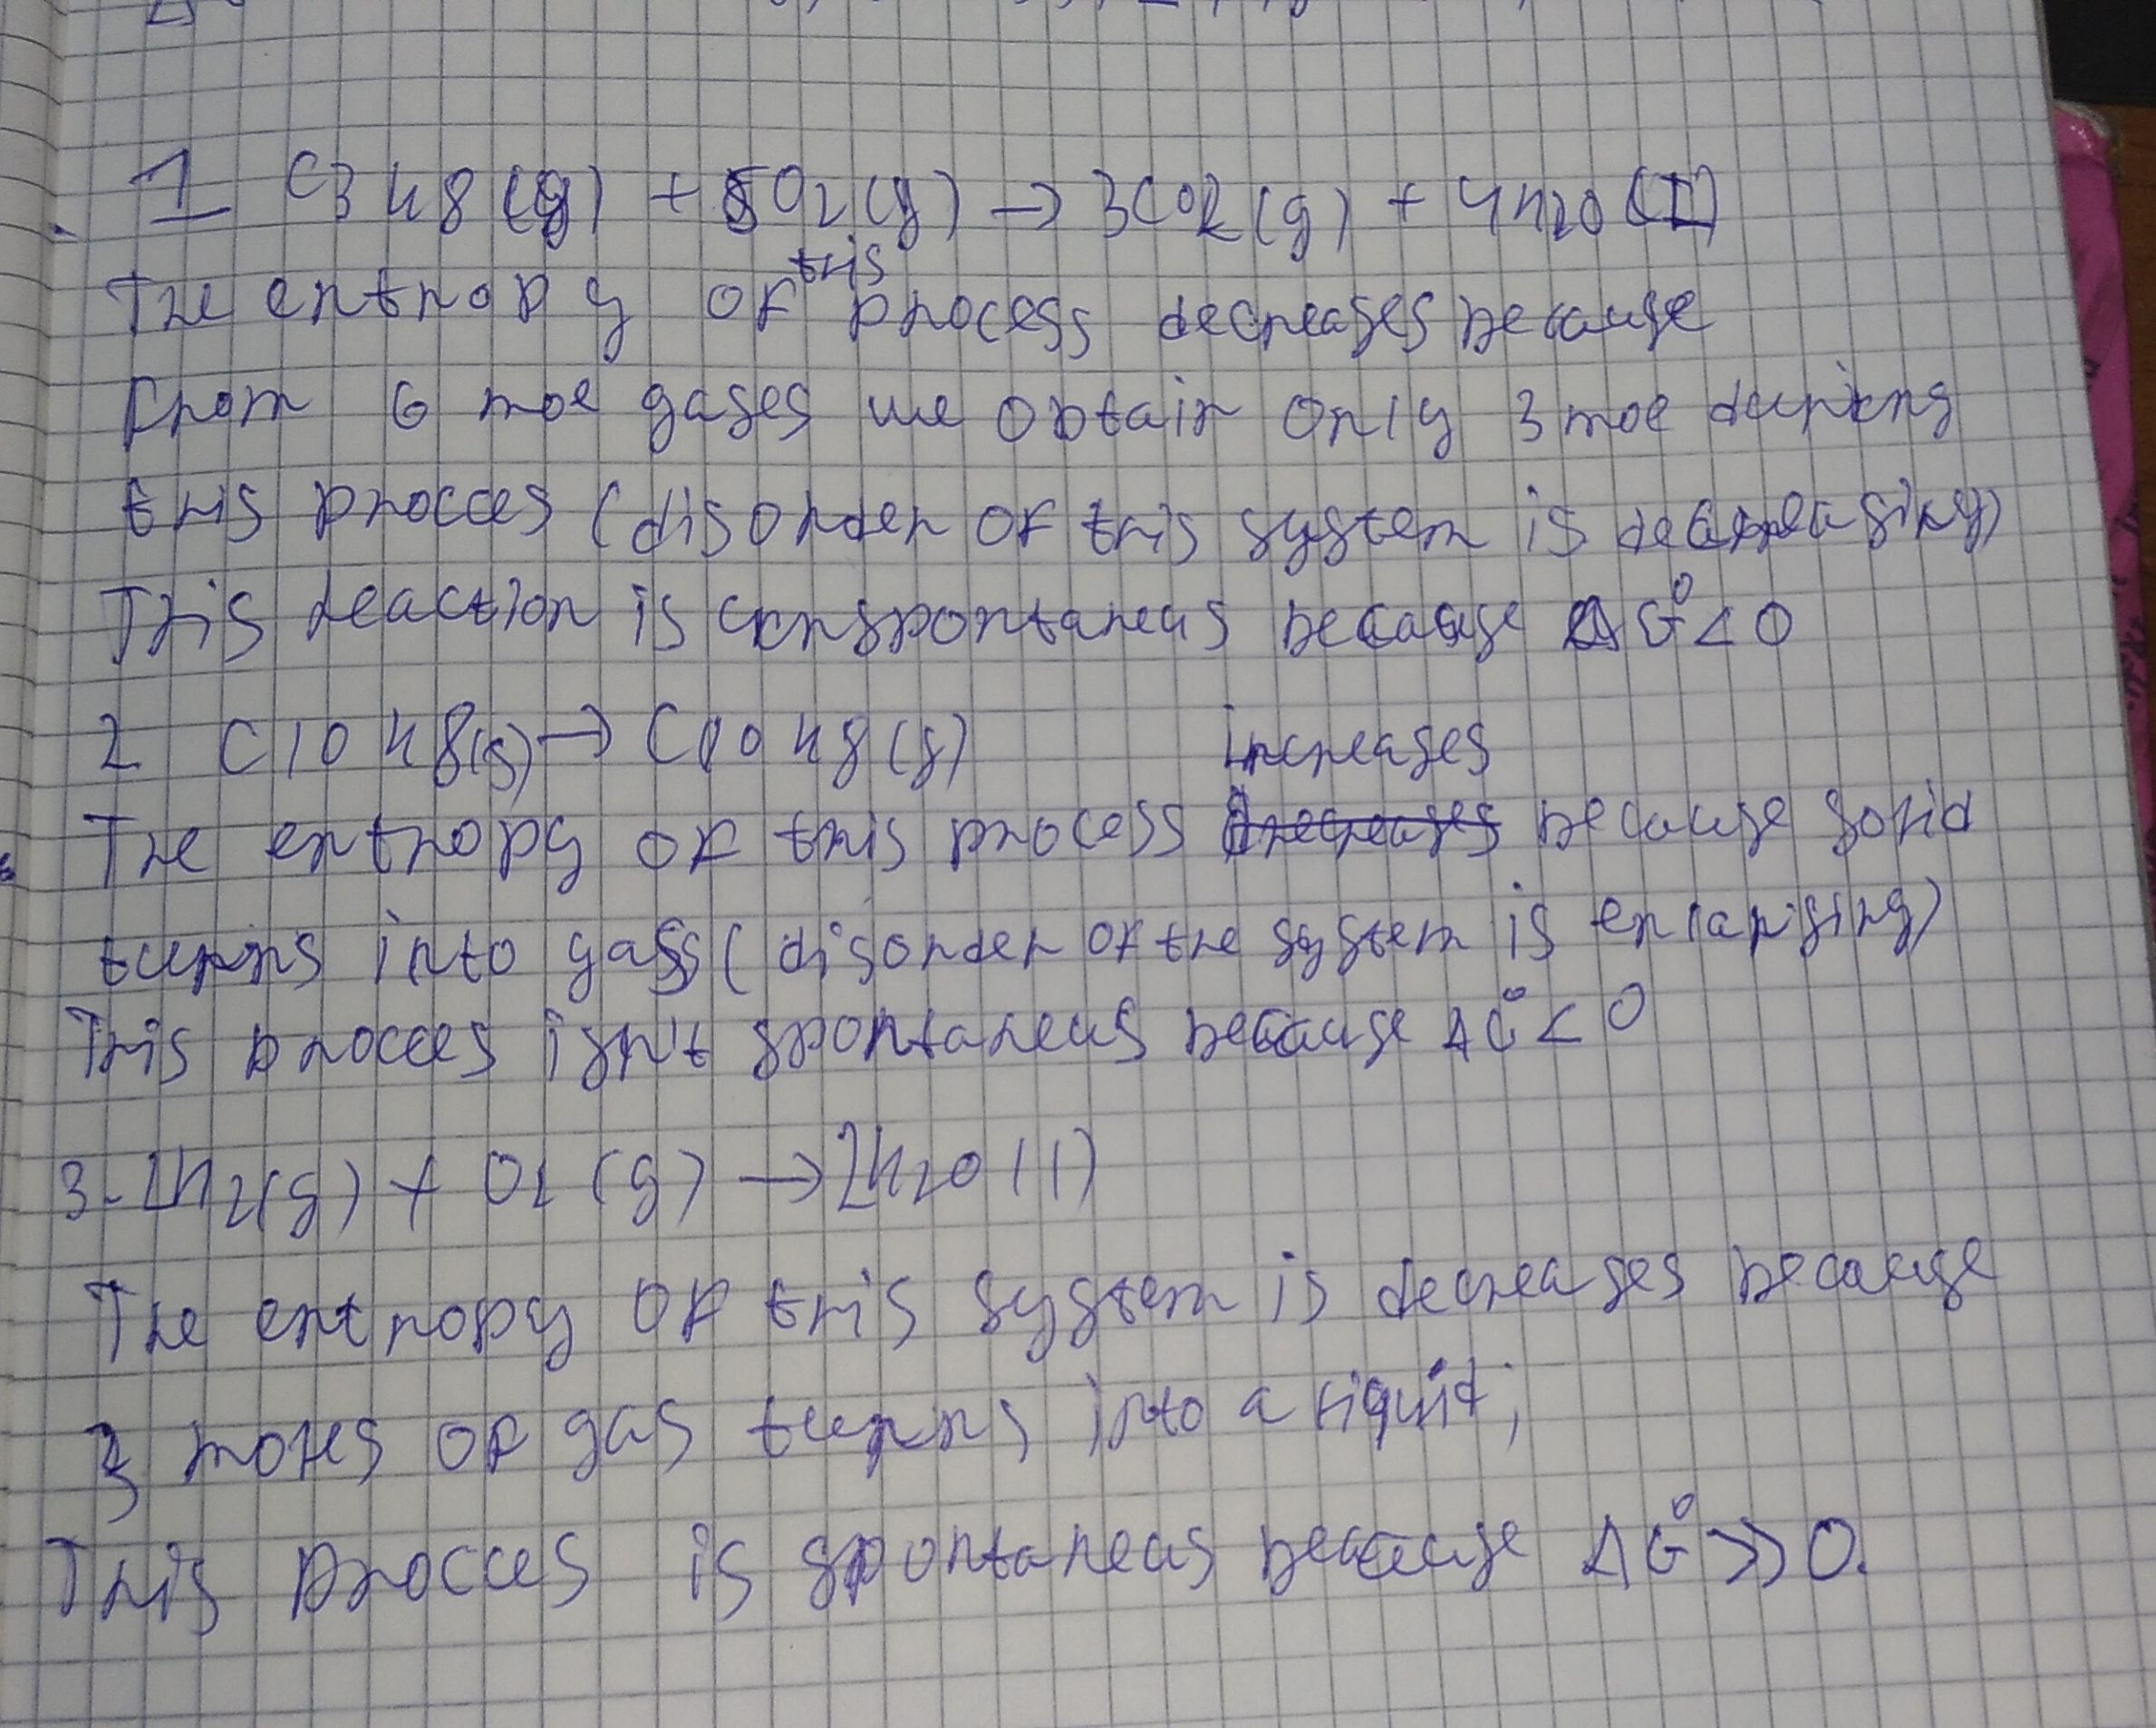 1 C3H8(g) + 5O2(g) → 3CO2(g) + 4H2O(l)
The entropy of this process decreases because
from 6 mol gases we obtain only 3 mol during
this procces (disorder of this system is decreasing)
This reaction is unspontaneus because ΔG° < 0
2 C10H8(s) → C10H8(g)
increases
The entropy of this process decreases because solid
turns into gass (disorder of the system is enlarging)
This procces isn't spontaneus because ΔG° < 0
3- 2H2(g) + O2(g) → 2H2O(l)
The entropy of this system is decreases because
3 moles of gas turns into a liquid;
This procces is spontaneus because ΔG° >> 0.